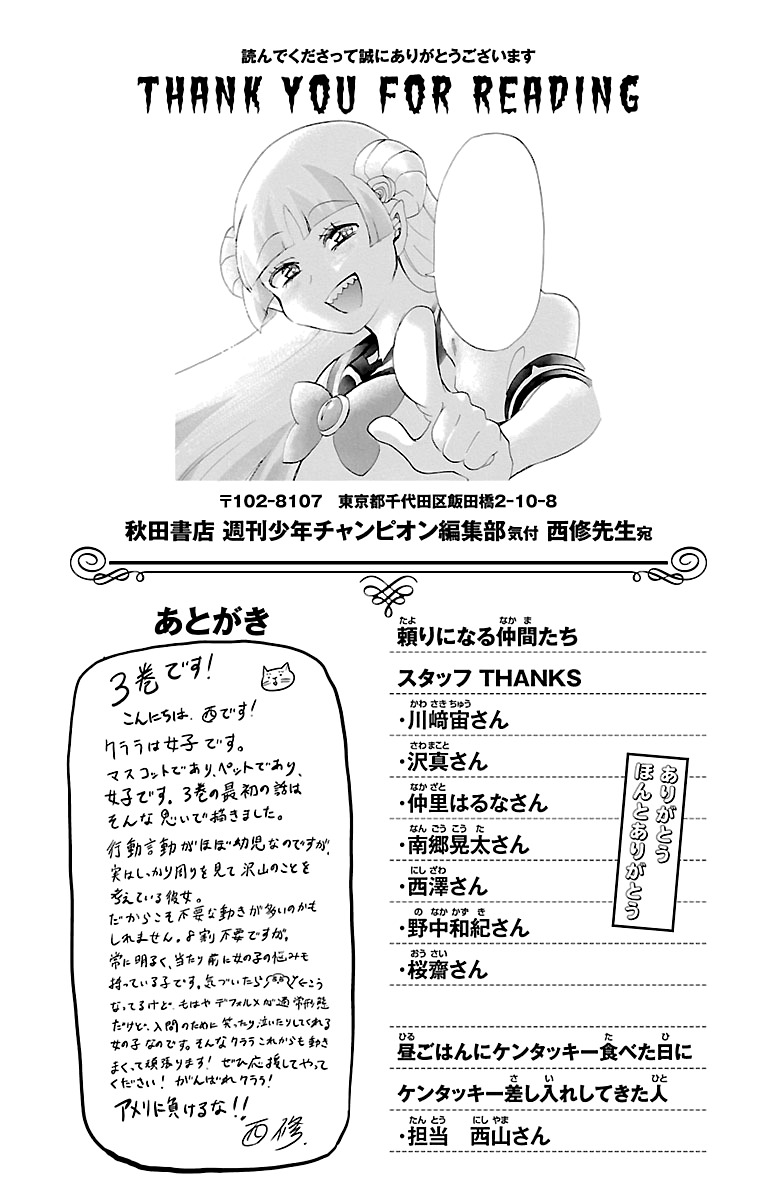 読んでくださって誠にありがとうございます
THANK YOU FOR READING
〒102-8107 東京都千代田区飯田橋2-10-8
秋田書店 週刊少年チャンピオン編集部気付 西修先生宛
あとがき
3巻です!
こんにちは、西です!
クララは女子です。
マスコットであり、ペットであり、
女子です。3巻の最初の話は
そんな思いで描きました。
行動言動がほぼ幼児なのですが、
実はしっかり周りを見て沢山のことを
考えている彼女。
だからこそ不要な動きが多いのかも
しれません。8割不要ですが。
常に明るく、当たり前に女の子の悩みも
持っている子です。気づいたら←こう
なってるけど、もはやデフォルメが通常形態
だけど、入間のために笑ったり泣いたりしてくれる
女の子なのです。そんなクララこれからも動き
まくって頑張ります!ぜひ応援してやって
ください!がんばれクララ!
アメリに負けるな!!
西修.
頼りになる仲間たち
たよ なかま
スタッフ THANKS
・川﨑宙さん
かわさきちゅう
・沢真さん
さわまこと
・仲里はるなさん
なかざと
・南郷晃太さん
なんごうこうた
・西澤さん
にしざわ
・野中和紀さん
のなかかずき
・桜齋さん
おうさい
ありがとう
ほんとありがとう
昼ごはんにケンタッキー食べた日に
ひる た ひ
ケンタッキー差し入れしてきた人
さ い ひと
・担当 西山さん
たんとう にしやま